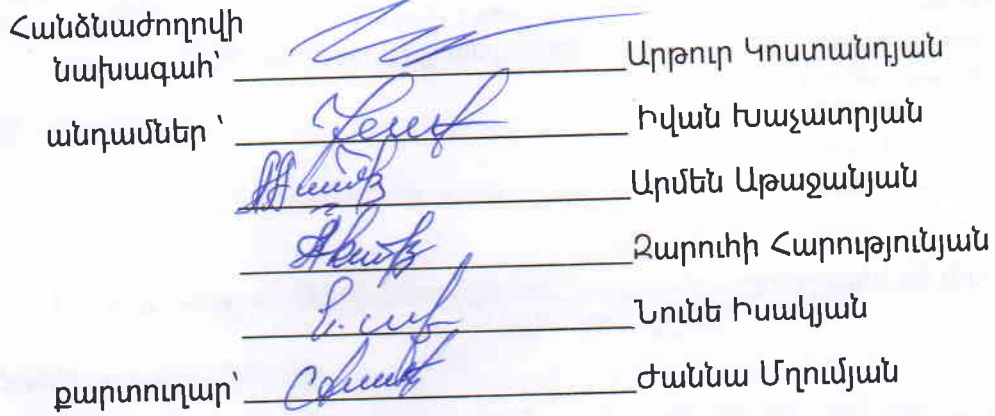 Հանձնաժողովի
նախագահ՝ Արթուր Կոստանդյան
անդամներ ՝ Իվան Խաչատրյան
Արմեն Աթաջանյան
Զարուհի Հարությունյան
Նունե Իսակյան
քարտուղար՝ Ժաննա Մղումյան